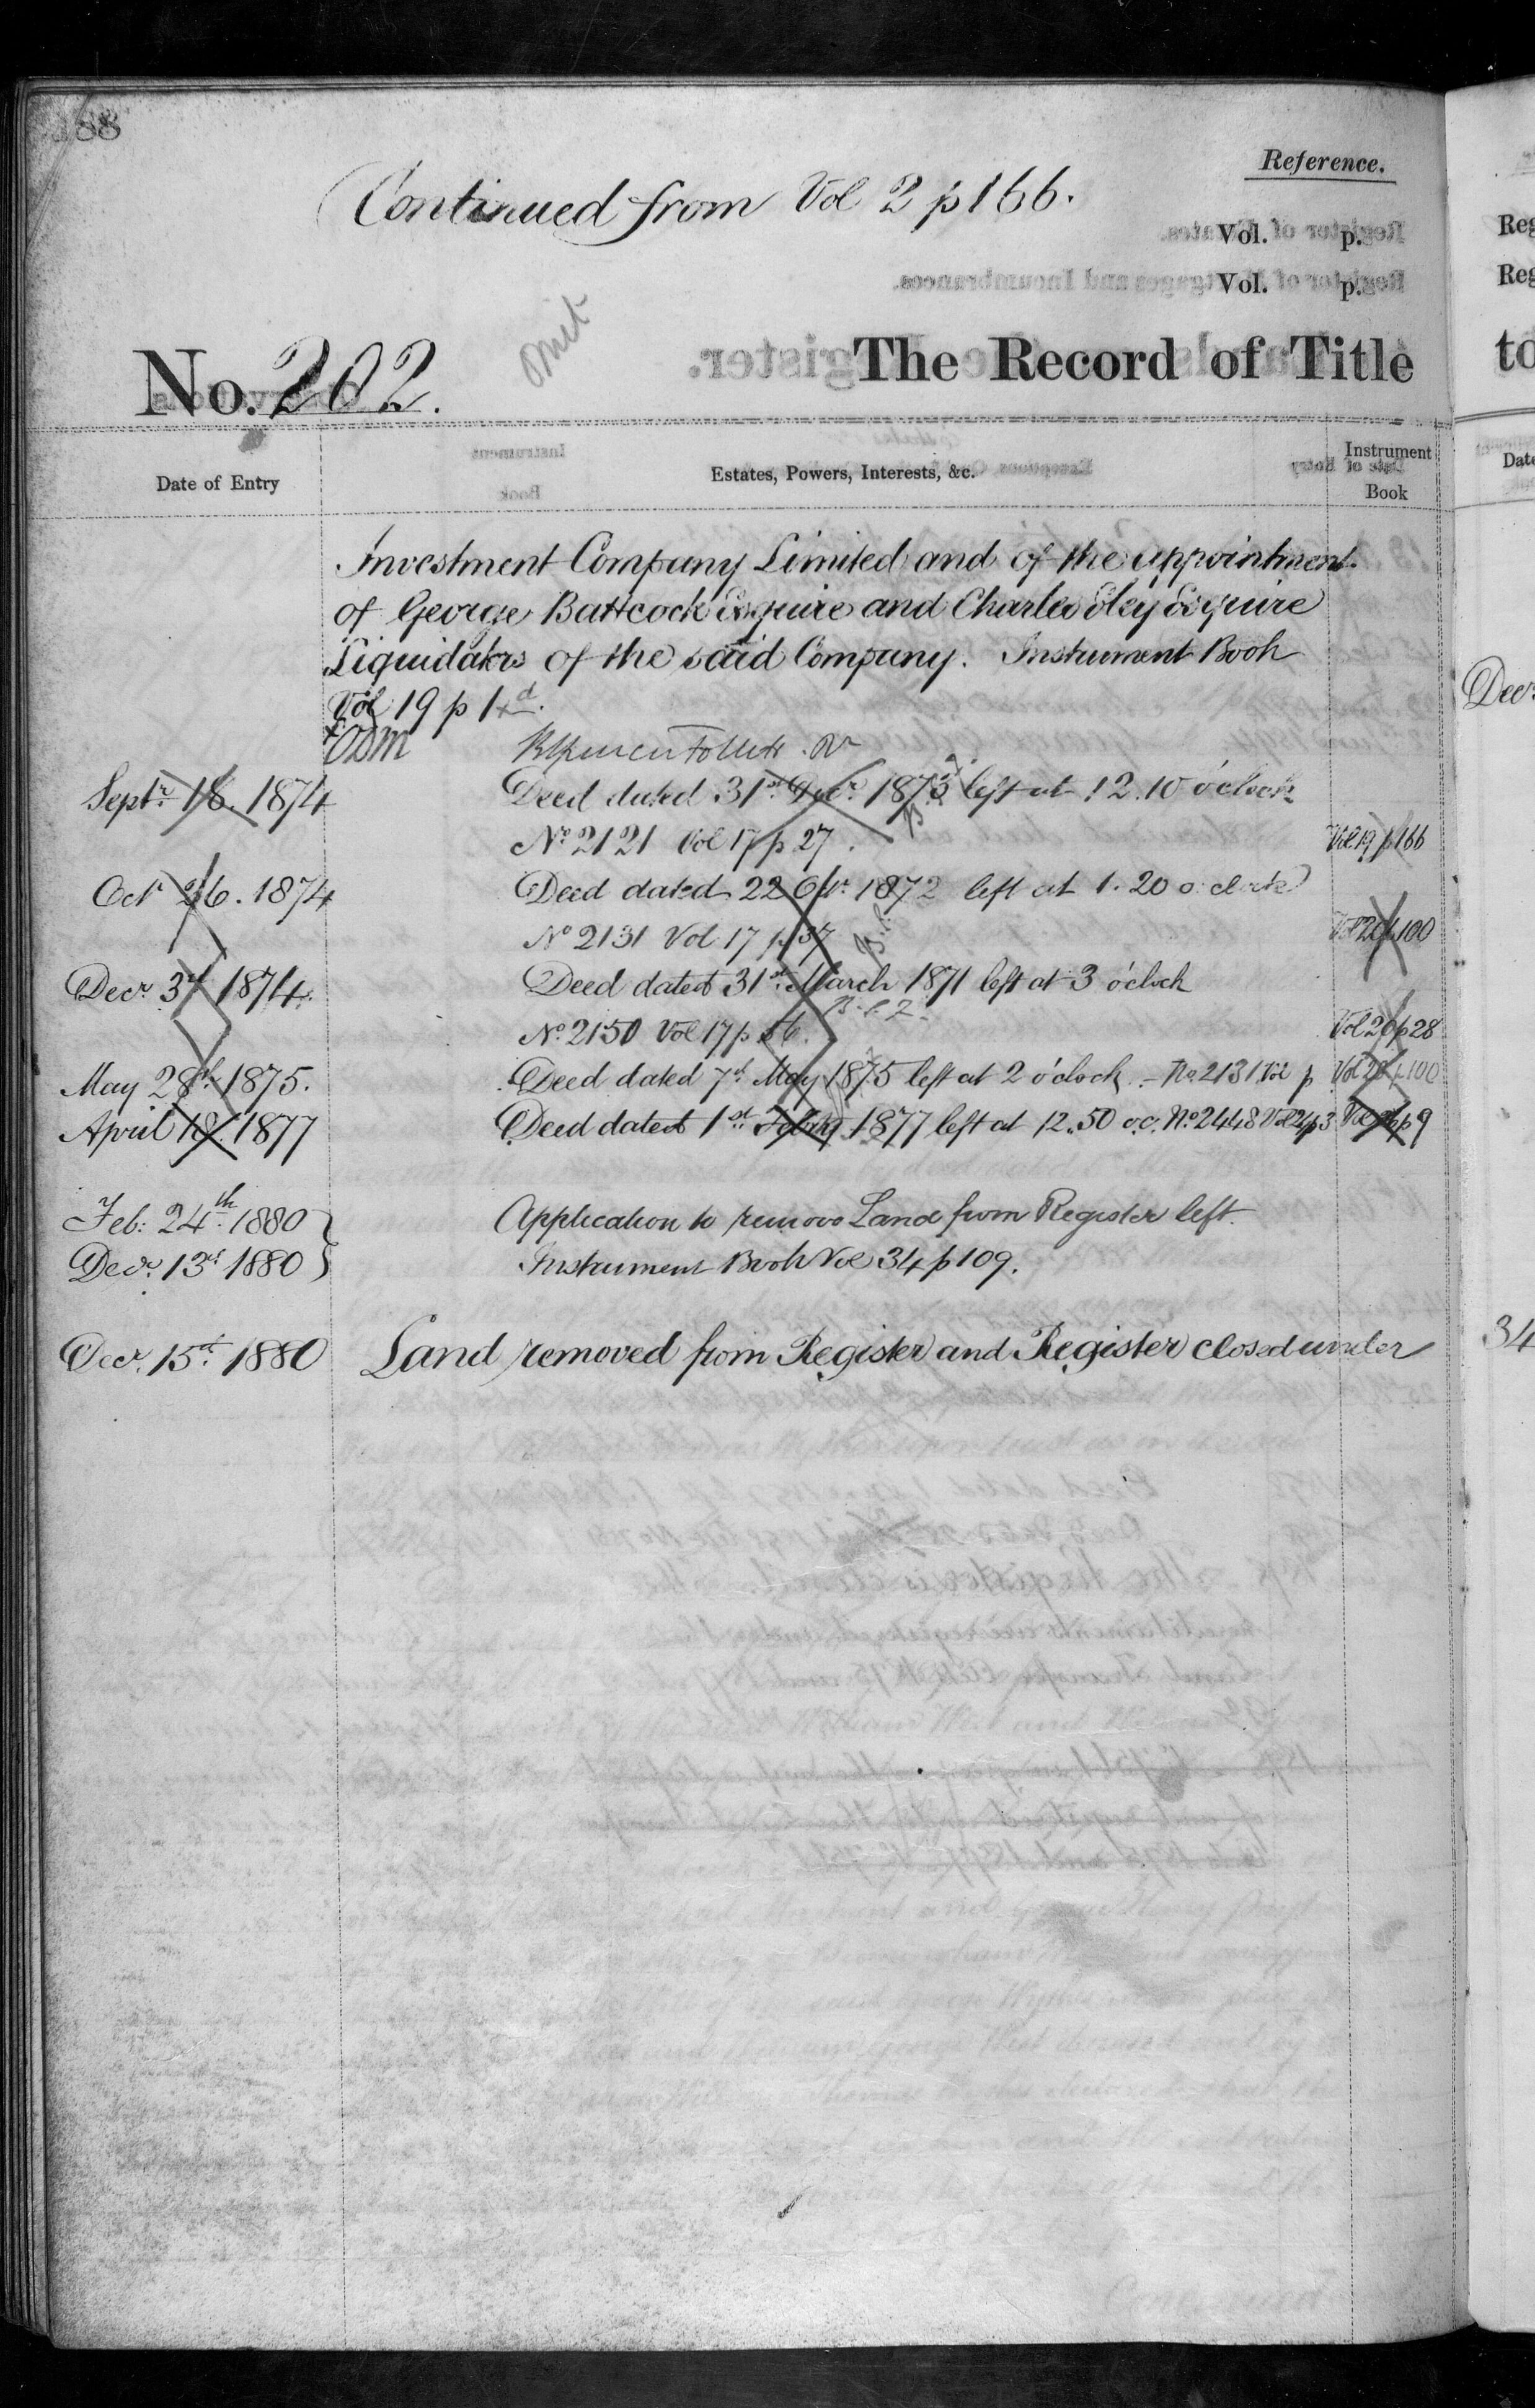 188
Reference.
Continued from Vol 2 p 166.
Vol. p.
Vol. p.
omit
No. 202.
The Record of Title
Date of Entry
Estates, Powers, Interests, &c.
Instrument
Book
Investment Company Limited and of the appointment
of George Battcock Esquire and Charles Oley Esquire
Liquidators of the said Company. Instrument Book
Vol 19 p 1
Brent Follett. Rr
Septr. 18. 1874 Deed dated 31st Decr. 1873 left at 12.10 o'clock
No 2121 Vol 17 p 27. Vol 19 p 166
Octr 26. 1874 Deed dated 22 Octr. 1872 left at 1.20 o'clock
No 2131 Vol 17 p 37 Vol 20 p 100
Decr. 3d 1874. Deed dated 31st March 1871 left at 3 o'clock
No. 2150 Vol 17 p 56. Vol 20 p 28
May 28th 1875. Deed dated 7th May 1875 left at 2 o'clock - No 2131 Vol p Vol 20 p 100
April 18. 1877 Deed dated 1st Febry 1877 left at 12.50 o.c. No. 2448 Vol 24 p 3 p 9
Feb: 24th 1880 Application to remove Land from Register left.
Decr. 13th 1880 Instrument Book Vol 34 p 109.
Decr. 15th 1880 Land removed from Register and Register closed under
Reg
Reg
to
Date
Decr.
34